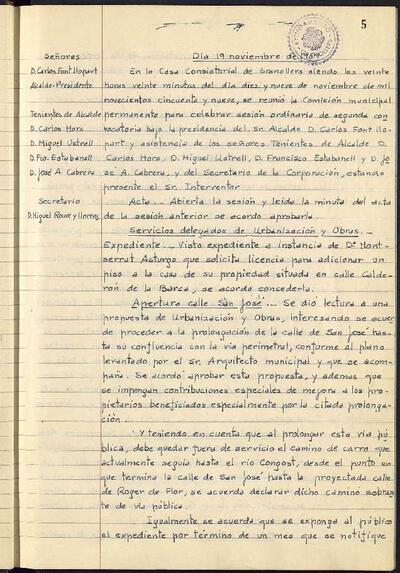 5
Señores
D. Carlos Font Llopart
Alcalde-Presidente
Tenientes de Alcalde
D. Carlos Hors
D. Miguel Ustrell
D. Fco. Estabanell
D. José A. Cabrera
Secretario
D. Miguel Roure y Llorens
Día 19 noviembre de 1959
En la Casa Consistorial de Granollers siendo las veinte
horas veinte minutos del día dies, y nueve de noviembre de mil
novecientos cincuenta y nueve, se reunió la Comisión municipal
permanente para celebrar sesión ordinaria de segunda con
vocatoria bajo la presidencia del Sr. Alcalde D. Carlos Font Llo-
part y asistencia de los señores Tenientes de Alcalde D.
Carlos Hors, D. Miguel Ustrell, D. Francisco Estabanell y D. Jo
se A. Cabrera, y del Secretario de la Corporación, estando
presente el Sr. Interventor.
Acta._ Abierta la sesión y leída la minuta del acta
de la sesión anterior se acordo aprobarla._
Servicios delegados de Urbanización y Obras._
Expediente._ Visto expediente a instancia de Dª Mont-
serrat Asturgo que solicita licencia para adicionar un
piso a la casa de su propiedad situada en calle Calde-
rón de la Barca, se acordo concederla.
Apertura calle San José._ Se dió lectura a una
propuesta de Urbanización y Obras, interesando se acuer
de proceder a la prolongación de la calle de San José has-
ta su confluencia con la vía perimetral, conforme al plano
levantado por el Sr. Arquitecto municipal y que se acom-
paña. Se acordo aprobar esta propuesta, y ademas que
se impongan contribuciones especiales de mejora a los pro-
pietarios beneficiados especialmente por la citada prolonga-
ción.
Y teniendo en cuenta que al prolongar esta vía pú
blica, debe quedar fuera de servicio el camino de carro que
actualmente seguia hasta el río Congost, desde el punto en
que termina la calle de San José hasta la proyectada calle
de Roger de Flor, se acuerda declarar dicho camino sobran
te de vía pública.
Igualmente se acuerda que se exponga al público
el expediente por término de un mes que se notifique